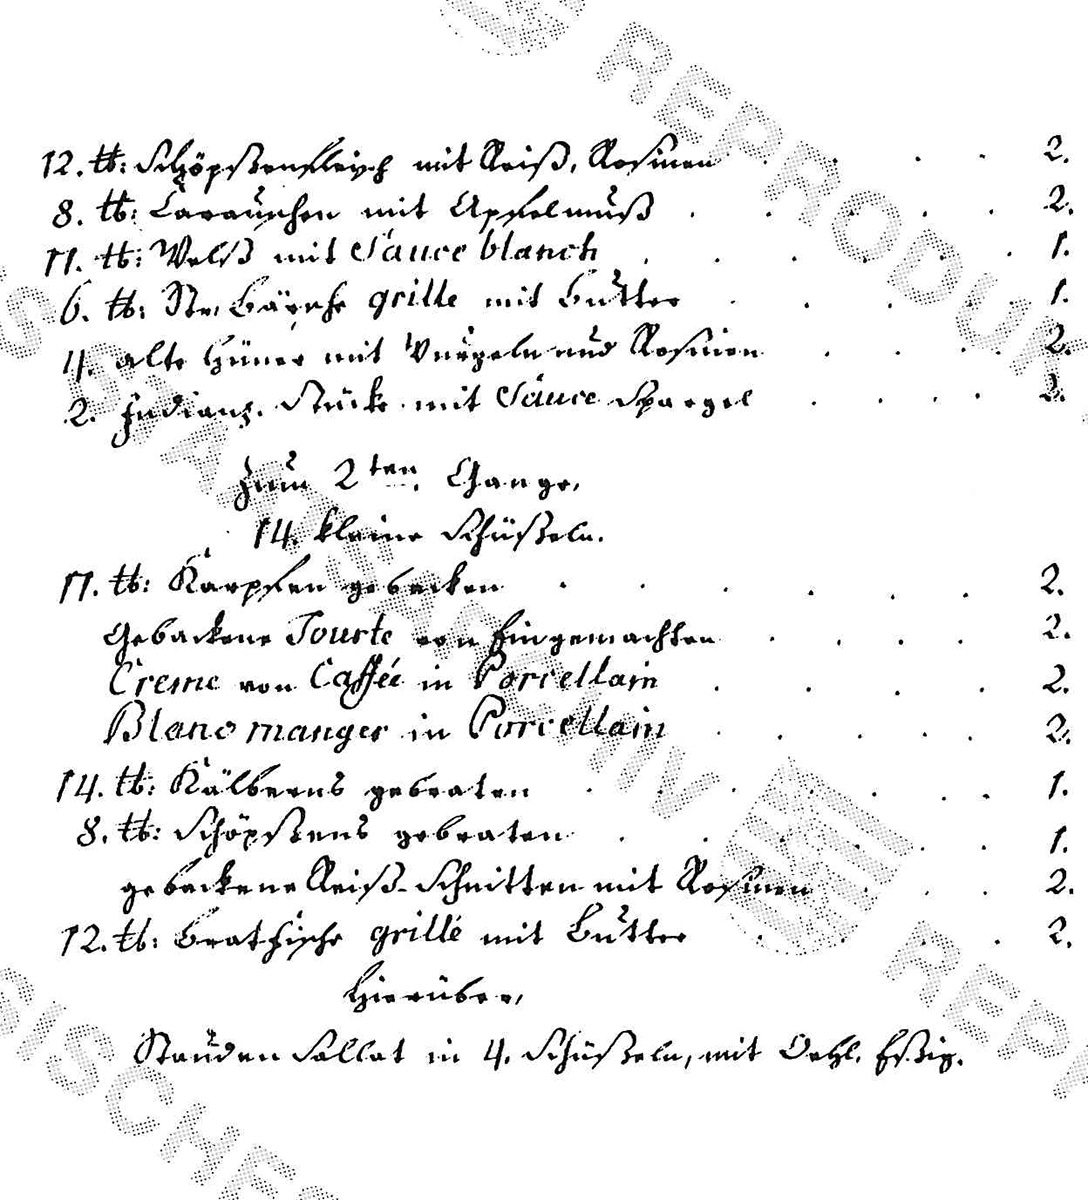 12. ℔: Schöpßenfleisch mit Reiß, Rosinen . . . . 2.
8. ℔: mit Apfelmuß . . . . . 2.
11. ℔: Welß mit Sauce blanch . . . . . . 1.
6. ℔: grille mit Butter . . . . . 1.
4. alte Hüner mit Wurzeln und Rosinen . . . . 2.
2. Indian: Stücke mit Sauce Spargel . . . . 2.
Zum 2ten. Gange,
14. kleine Schüßeln.
11. ℔: Karpfen gebacken . . . . . . 2.
Gebackene Tourte von Eingemachten . . . . 2.
Creme von Caffée in Porcellain . . . . 2.
Blanc manger in Porcellain . . . . . 2.
14. ℔: Kälberns gebraten . . . . . . 1.
8. ℔: Schöpßens gebraten . . . . . 1.
gebackene Reiß-Schnitten mit Rosinen . . . 2.
12. ℔: Bratfische grillé mit Butter . . . . 2.
Hierüber,
Stauden Sallat in 4. Schüßeln, mit Oehl. Eßig.
REPRODUK
SAATSARCHIV
SISCHES
REP